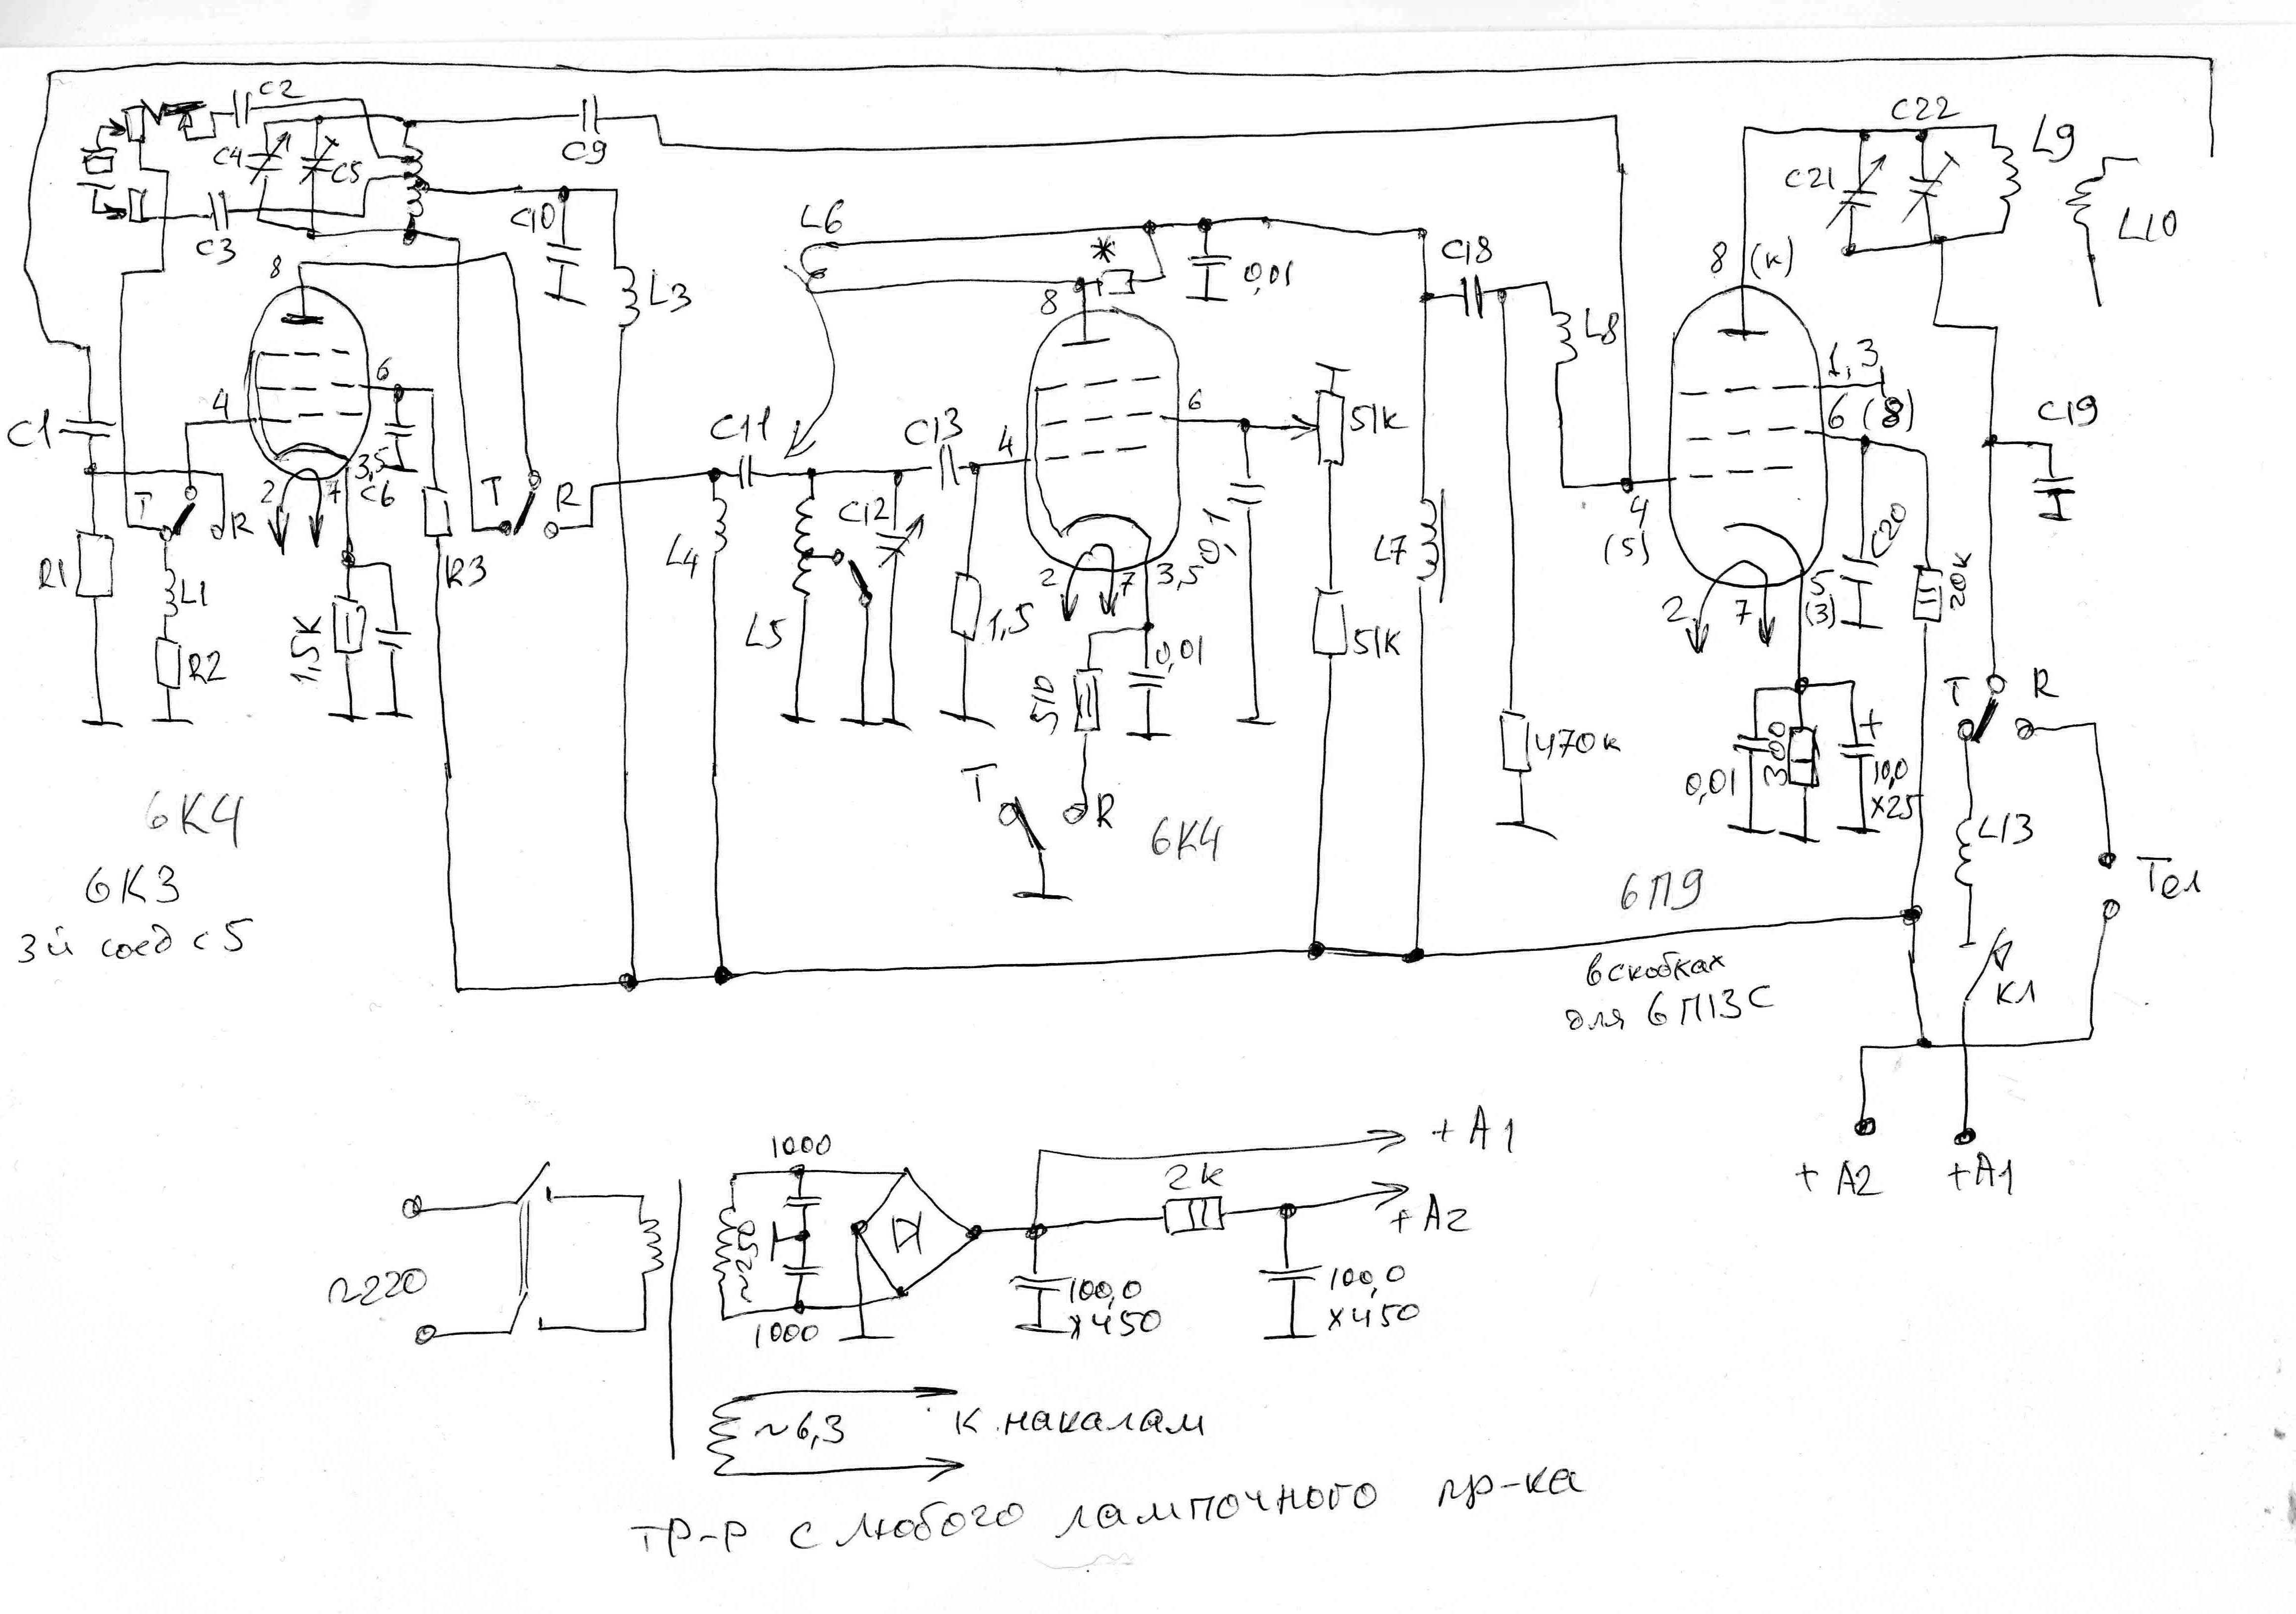 C2
C4
C5
C3
C9
C10
L3
8
6
4
C1
3,5
C6
2
7
T
R
R1
L1
R2
1,5K
R3
T
R
L4
6К4
6К3
3й соед с 5
L6
*
8
0,01
C11
C13
4
6
C12
L5
1,5
2
7
3,5
0,1
0,01
510
T
R
6К4
51К
51К
C18
L8
L7
470к
C22
L9
C21
L10
8 (к)
1,3
6 (8)
C19
4
(5)
C20
20к
2
7
5
(3)
0,01
300
+
10,0
х25
T
R
L13
Тел
КЛ
6П9
в скобках
для 6П13С
+ А2
+А1
~220
1000
~250
1000
+ А1
2К
+ А2
100,0
х450
100,0
х450
~6,3
К накалам
ТР-Р с любого лампочного пр-ка